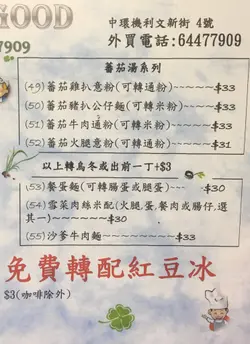 GOOD
中環機利文新街 4號
7909
外買電話:64477909
蕃茄湯系列
(49)蕃茄雞扒意粉(可轉通粉)~~~~~$33
(50)蕃茄豬扒公仔麵(可轉米粉)~~~~$33
(51)蕃茄牛肉通粉(可轉米粉)~~~~~$33
(52)蕃茄火腿意粉(可轉通粉)~~~~~$31
以上轉烏冬或出前一丁+$3
(53)餐蛋麵(可轉腸蛋或火腿蛋)~~~~$30
(54)雪菜肉絲米配(火腿,蛋,餐肉或腸仔,選
其一)~~~~~~~$30
(55)沙爹牛肉麵~~~~~~~~~$33
免費轉配紅豆冰
$3(咖啡除外)